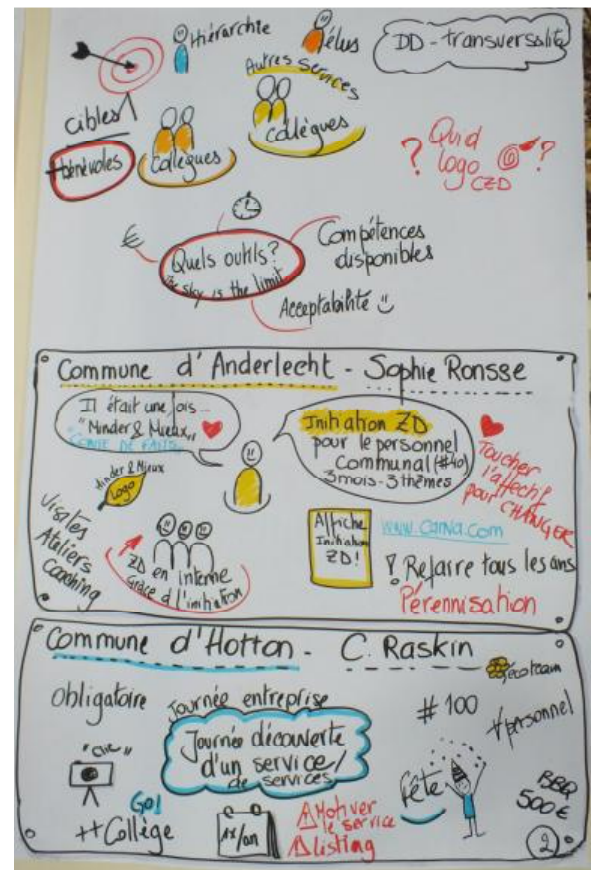 Hiérarchie
élus
DD - transversalité
Autres services
cibles
bénévoles
collègues
collègues
? Quid
logo
CZD
?
€
Quels outils?
the sky is the limit
Compétences
disponibles
Acceptabilité
Commune d'Anderlecht - Sophie Ronsse
Il était une fois...
"Minder & Mieux"
"CONTE DE FAITS"
Initiation ZD
pour le personnel
Communal (#40)
3 mois - 3 thèmes
Toucher
l'affectif
pour CHANGER
Minder & Mieux
Logo
Visites
Ateliers
Coaching
ZD en interne
Grâce à l'initiation
Affiche
Initiation
ZD!
! Refaire tous les ans
Pérennisation
Commune d'Hotton - C. Raskin
écoteam
Obligatoire
Journée entreprise
# 100
personnel
Journée découverte
d'un service/
de services
"clic"
Go!
++ Collège
1x/an
Motiver
le service
listing
fête
BBQ
500€
2